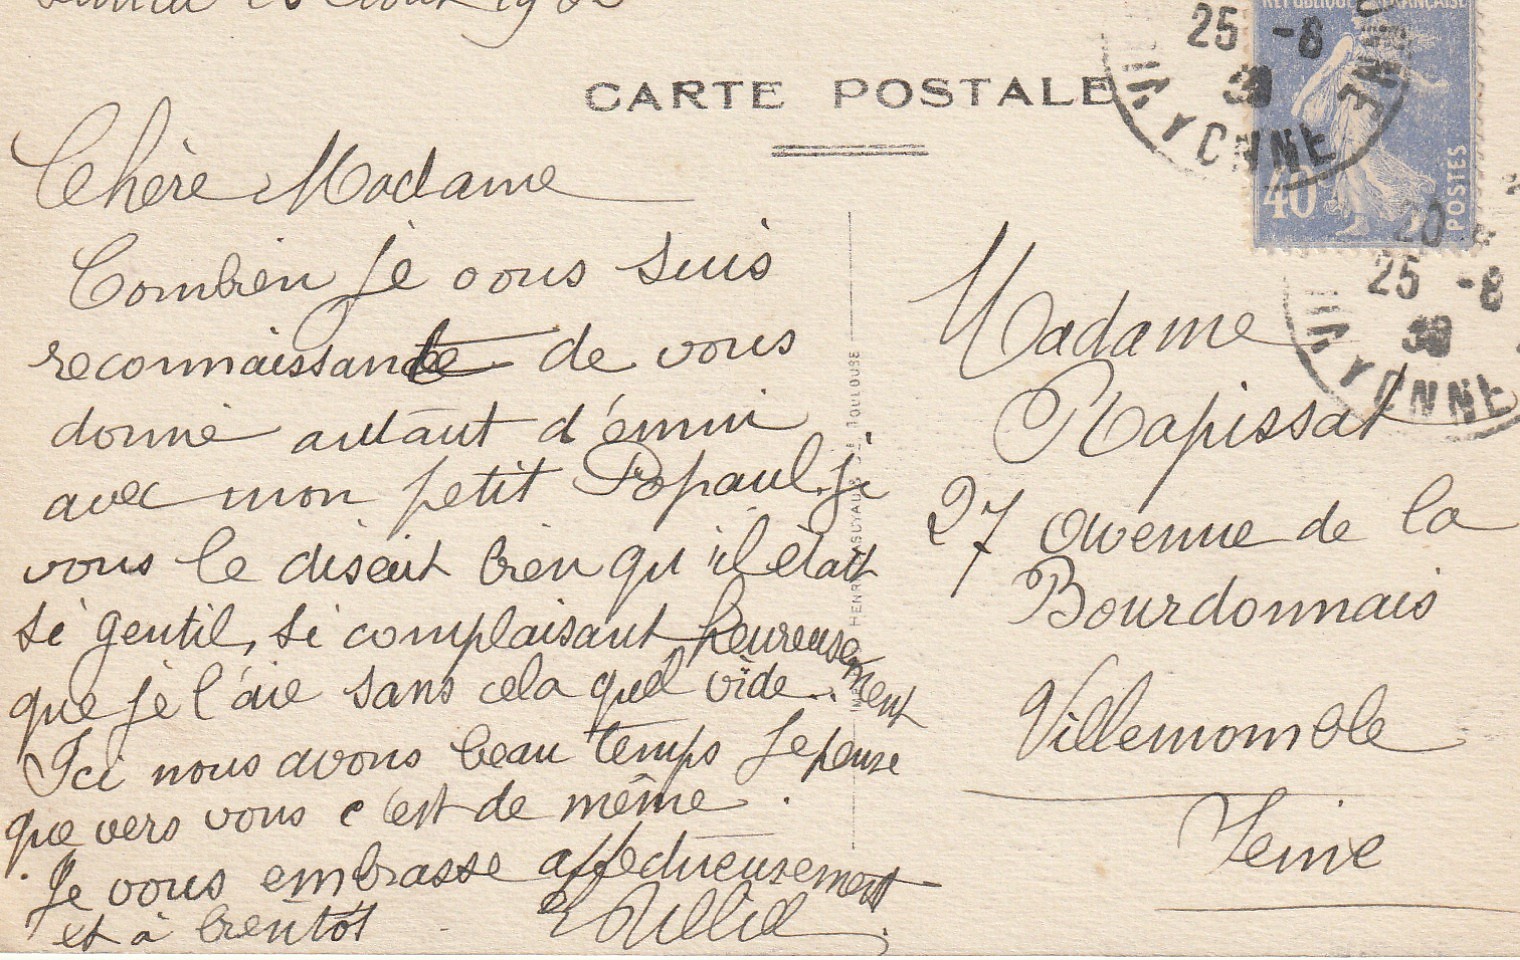 CARTE POSTALE
Chère Madame
Combien je vous suis
reconnaissante de vous
donné autant d'ennui
avec mon petit Popaul. je
vous le disait bien qu'il était
si gentil, si complaisant heureusement
que je l'aie sans cela quel vide..
Ici nous avons beau temps Je pense
que vers vous c'est de même.
Je vous embrasse affectueusement
et à bientôt
RÉPUBLIQUE FRANÇAISE
40
POSTES
25 -8
YONNE
25 -8
YONNE
Madame
Rapissat
27 avenue de la
Bourdonnais
Villemomble
Seine